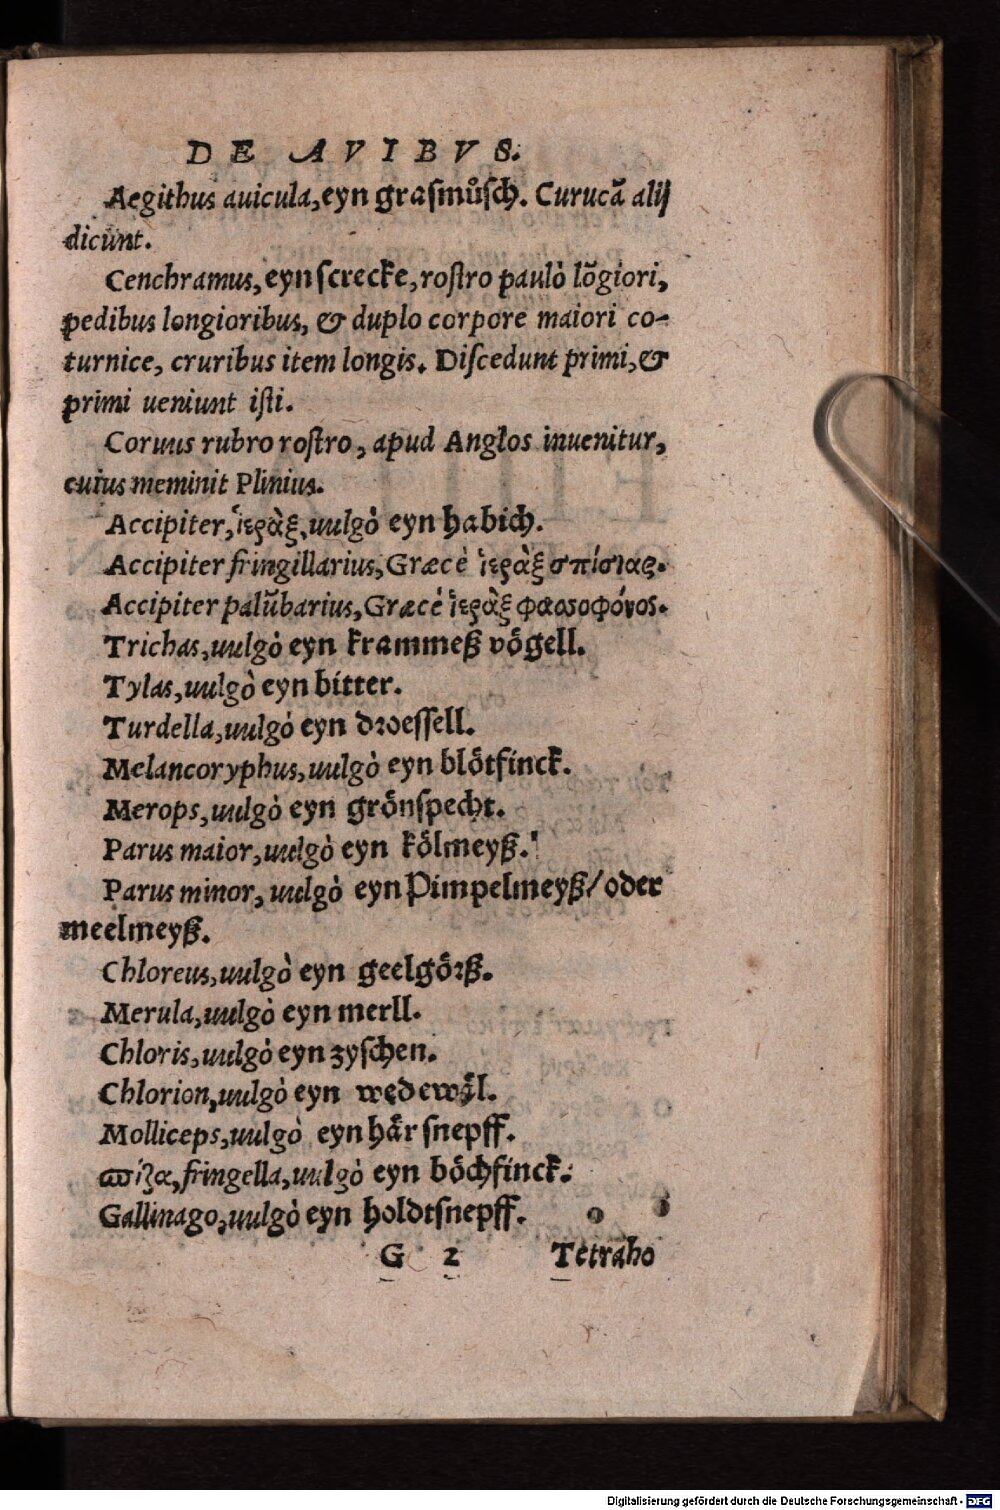 DE AVIBVS.
Aegithus auicula, eyn graſmůſch. Curucã alij
dicunt.
Cenchramus, eyn ſcrecke, roſtro paulò lõgiori,
pedibus longioribus, & duplo corpore maiori co-
turnice, cruribus item longis. Diſcedunt primi, &
primi ueniunt iſti.
Coruus rubro roſtro, apud Anglos inuenitur,
cuius meminit Plinius.
Accipiter, ἱεράξ, uulgò eyn habich.
Accipiter fringillarius, Græcè ἱεράξ σπίσιας.
Accipiter palũbarius, Græcè ἱεράξ φασοφόνος.
Trichas, uulgò eyn krammeß vögell.
Tylas, uulgò eyn bitter.
Turdella, uulgò eyn droeſſell.
Melancoryphus, uulgò eyn blötfinck.
Merops, uulgò eyn grönſpecht.
Parus maior, uulgò eyn kölmeyß.
Parus minor, uulgò eyn Pimpelmeyß/ oder
meelmeyß.
Chloreus, uulgò eyn geelgörß.
Merula, uulgò eyn merll.
Chloris, uulgò eyn zyſchen.
Chlorion, uulgò eyn
Molliceps, uulgò eyn hår ſnepff.
fringella, uulgò eyn böchfinck.
Gallinago, uulgò eyn holdtſnepff.
G 2 Tetraho
Digitalisierung gefördert durch die Deutsche Forschungsgemeinschaft - DFG